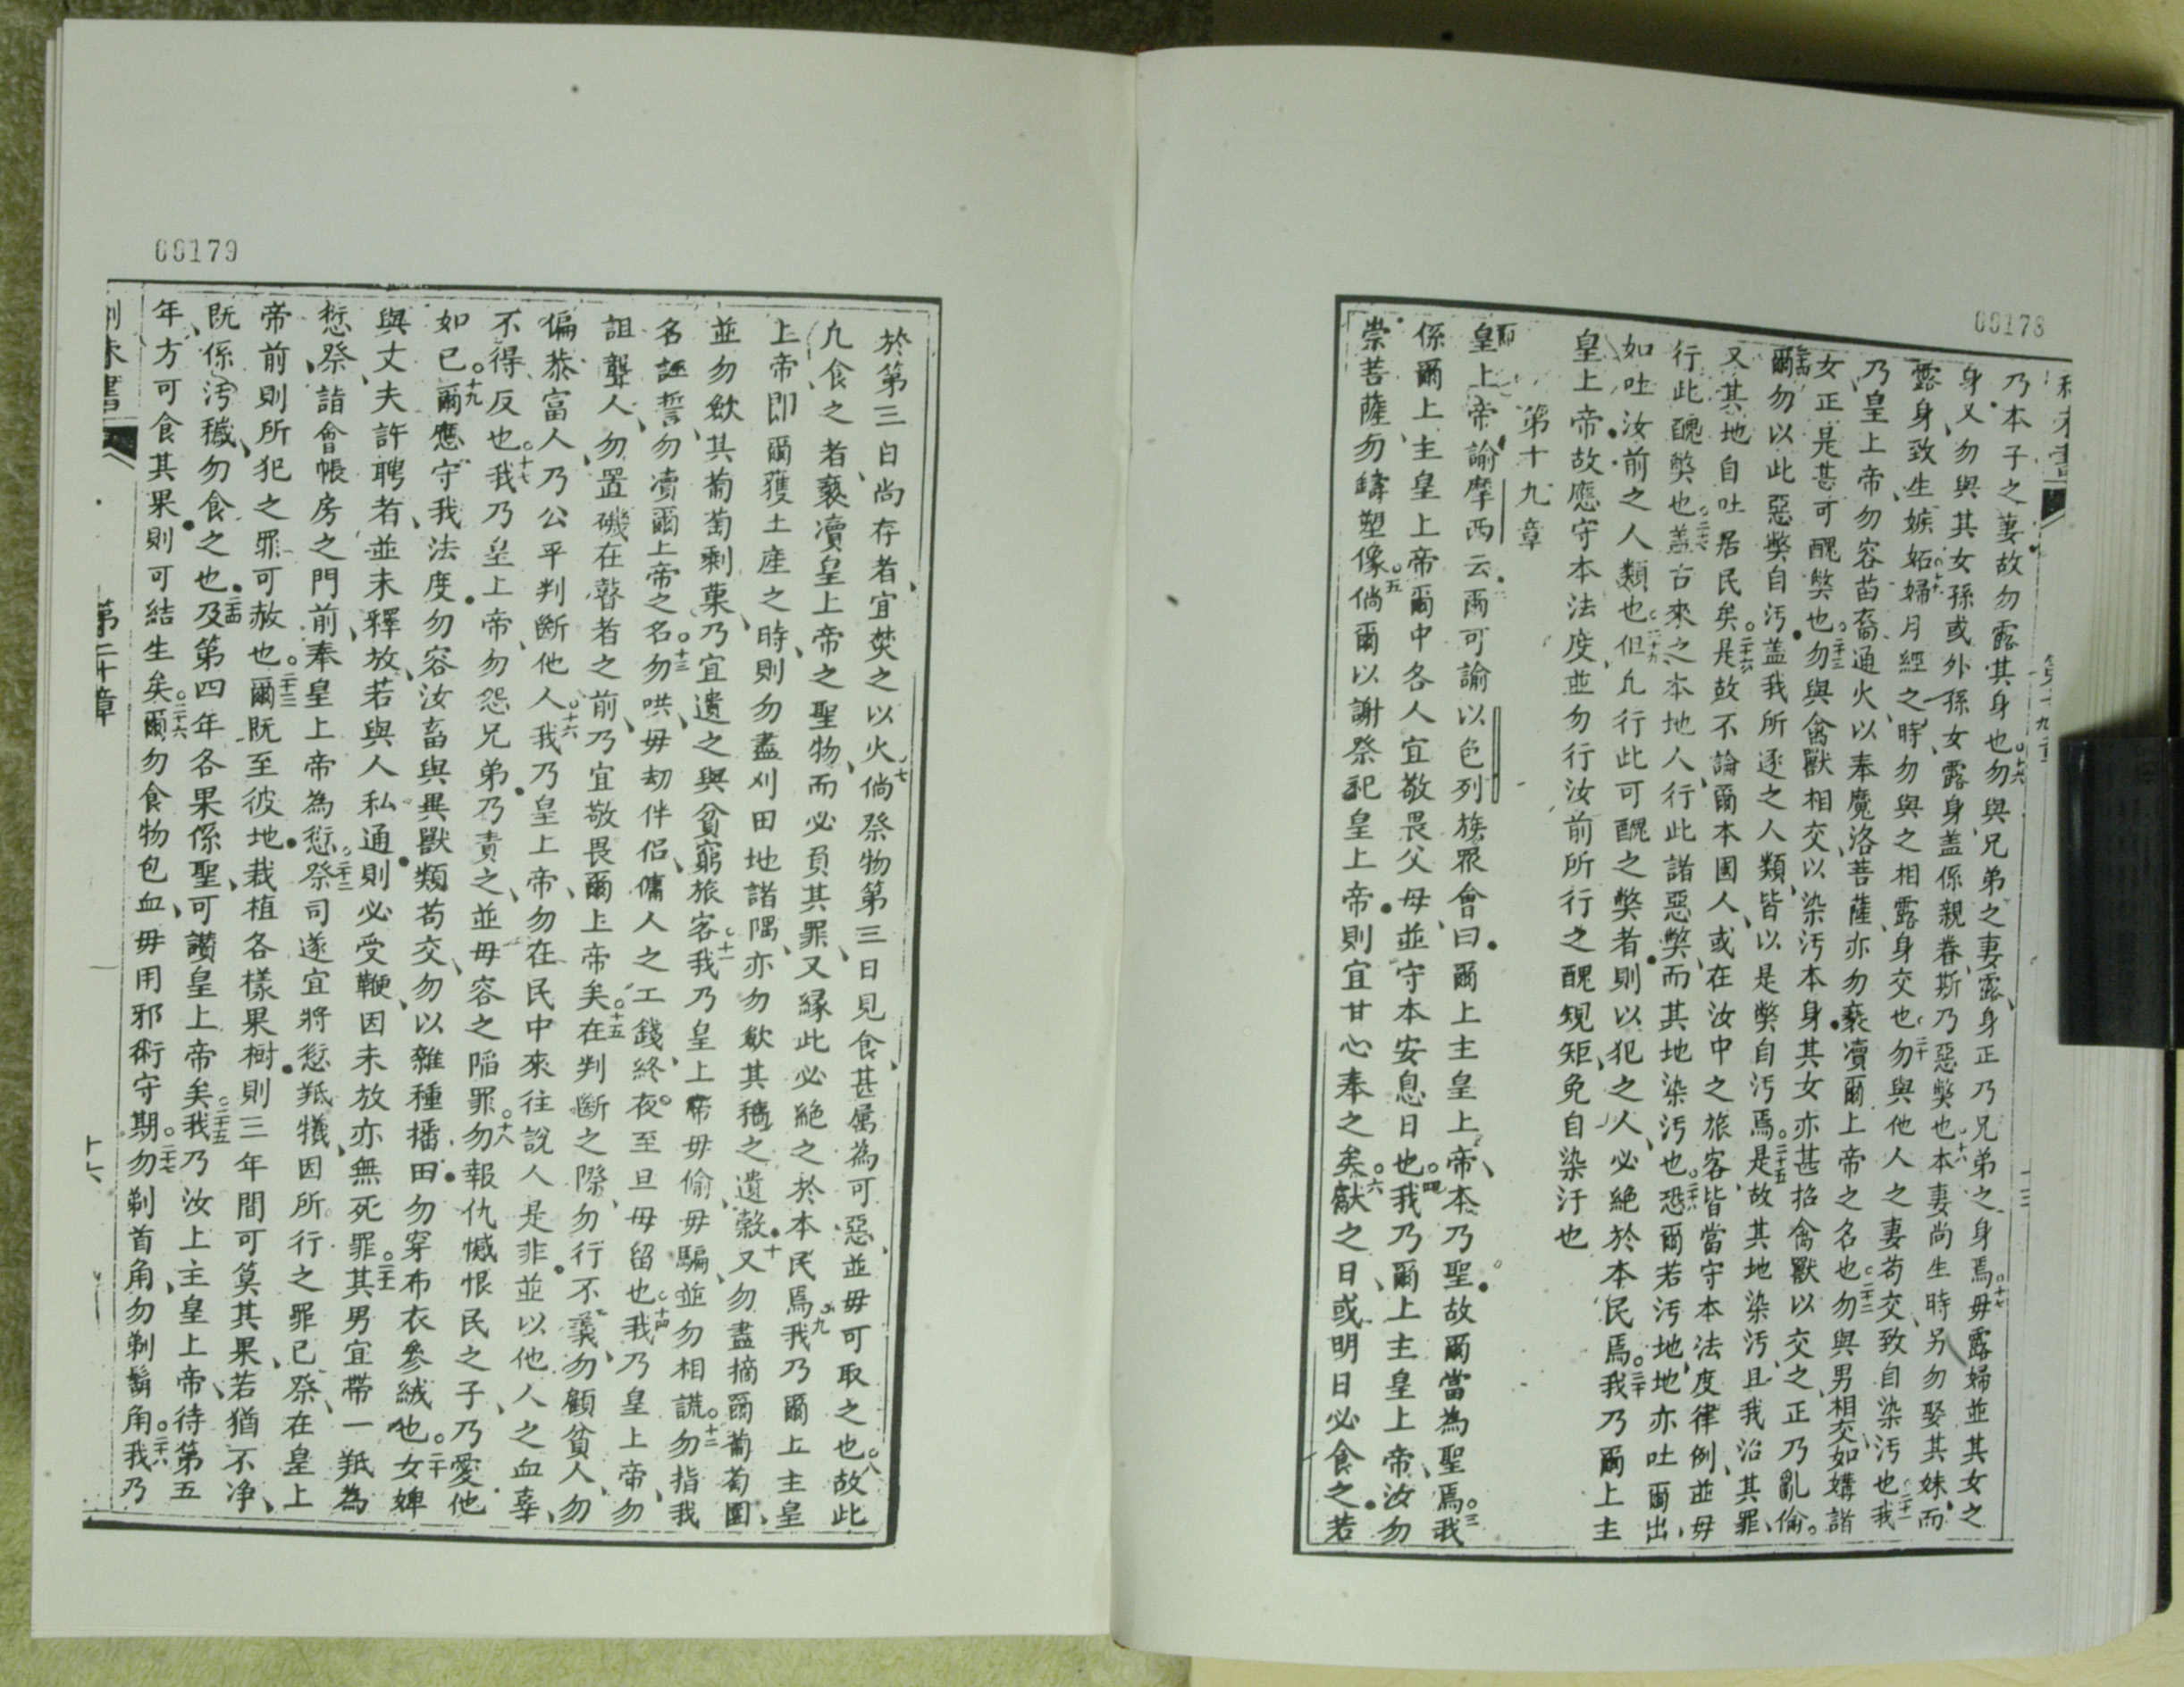 00178
乃本子之妻故勿露其身也十六勿與兄弟之妻露身正乃兄弟之身焉十七毋露婦並其女之
身又勿與其女孫或外孫女露身盖係親眷斯乃惡獘也十八本妻尚生時另勿娶其妹而
露身致生嫉妬十九婦月經之時勿與之相露身交也二十勿與他人之妻苟交致自染汚也二十一我
乃皇上帝勿容苗裔通火以奉魔洛菩薩亦勿褻凟爾上帝之名也二十二勿與男相交如媾諧
女正是甚可醜獘也二十三勿與禽獸相交以染汚本身其女亦甚招禽獸以交之正乃亂倫
爾勿以此惡獘自汚盖我所逐之人類皆以是獘自汚焉二十五是故其地染汚且我治其罪
又其地自吐居民矣二十六是故不論爾本國人或在汝中之旅客皆當守本法度律例並毋
行此醜獘也二十七盖古來之本地人行此諸惡獘而其地染汚也二十八恐爾若汚地地亦吐爾出
如吐汝前之人類也二十九但凢行此可醜之獘者則以犯之人必絕於本民焉三十我乃爾上主
皇上帝故應守本法度並勿行汝前所行之醜規矩免自染汙也
第十九章
皇上帝諭摩西云爾可諭以色列族眾會曰爾上主皇上帝本乃聖故爾當為聖焉三我
係爾上主皇上帝爾中各人宜敬畏父母並守本安息日也四我乃爾上主皇上帝汝勿
崇菩薩勿鑄塑像五倘爾以謝祭祀皇上帝則宜甘心奉之矣六獻之日或明日必食之若
00179
於第三日尚存者宜焚之以火七倘祭物第三日見食甚属為可惡並毋可取之也八故此
凢食之者褻凟皇上帝之聖物而必負其罪又緣此必絕之於本民焉九我乃爾上主皇
上帝即爾獲土產之時則勿盡刈田地諸隅亦勿斂其穡之遺穀十又勿盡摘爾葡萄園
並勿斂其葡萄剩菓乃宜遺之與貧窮旅客十一我乃皇上帝毋偷毋騙並勿相謊十二勿指我
名誑誓勿凟爾上帝之名十三勿哄毋刧伴侣傭人之工錢終夜至旦毋留也十四我乃皇上帝勿
詛聾人勿置磯在瞽者之前乃宜敬畏爾上帝矣十五在判斷之際勿行不義勿顧貧人勿
偏恭富人乃公平判斷他人十六我乃皇上帝勿在民中來往說人是非並以他人之血辜
不得反也十七我乃皇上帝勿怨兄弟乃責之並毋容之陷罪十八勿報仇憾恨民之子乃愛他
如己十九爾應守我法度勿容汝畜與異獸類苟交勿以雜種播田勿穿布衣參絨也二十女婢
與丈夫許聘者並未釋放若與人私通則必受鞭因未放亦無死罪二十一其男宜帶一羝為
愆祭詣會帳房之門前奉皇上帝為愆祭二十二司遂宜將愆羝犧因所行之罪已祭在皇上
帝前則所犯之罪可赦也二十三爾既至彼地栽植各樣果樹則三年間可算其果若猶不净
既係汚穢勿食之也二十四及第四年各果係聖可讚皇上帝矣二十五我乃汝上主皇上帝待第五
年方可食其果則可結生矣二十六爾勿食物包血毋用邪術守期二十七勿剃首角勿剃鬚角二十八我乃
第二十章
十六